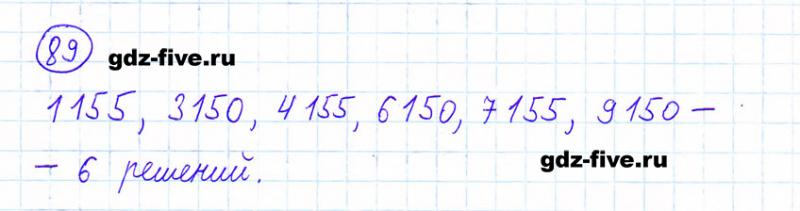 89
gdz-five.ru
1155, 3150, 4155, 6150, 7155, 9150 –
– 6 решений.
gdz-five.ru